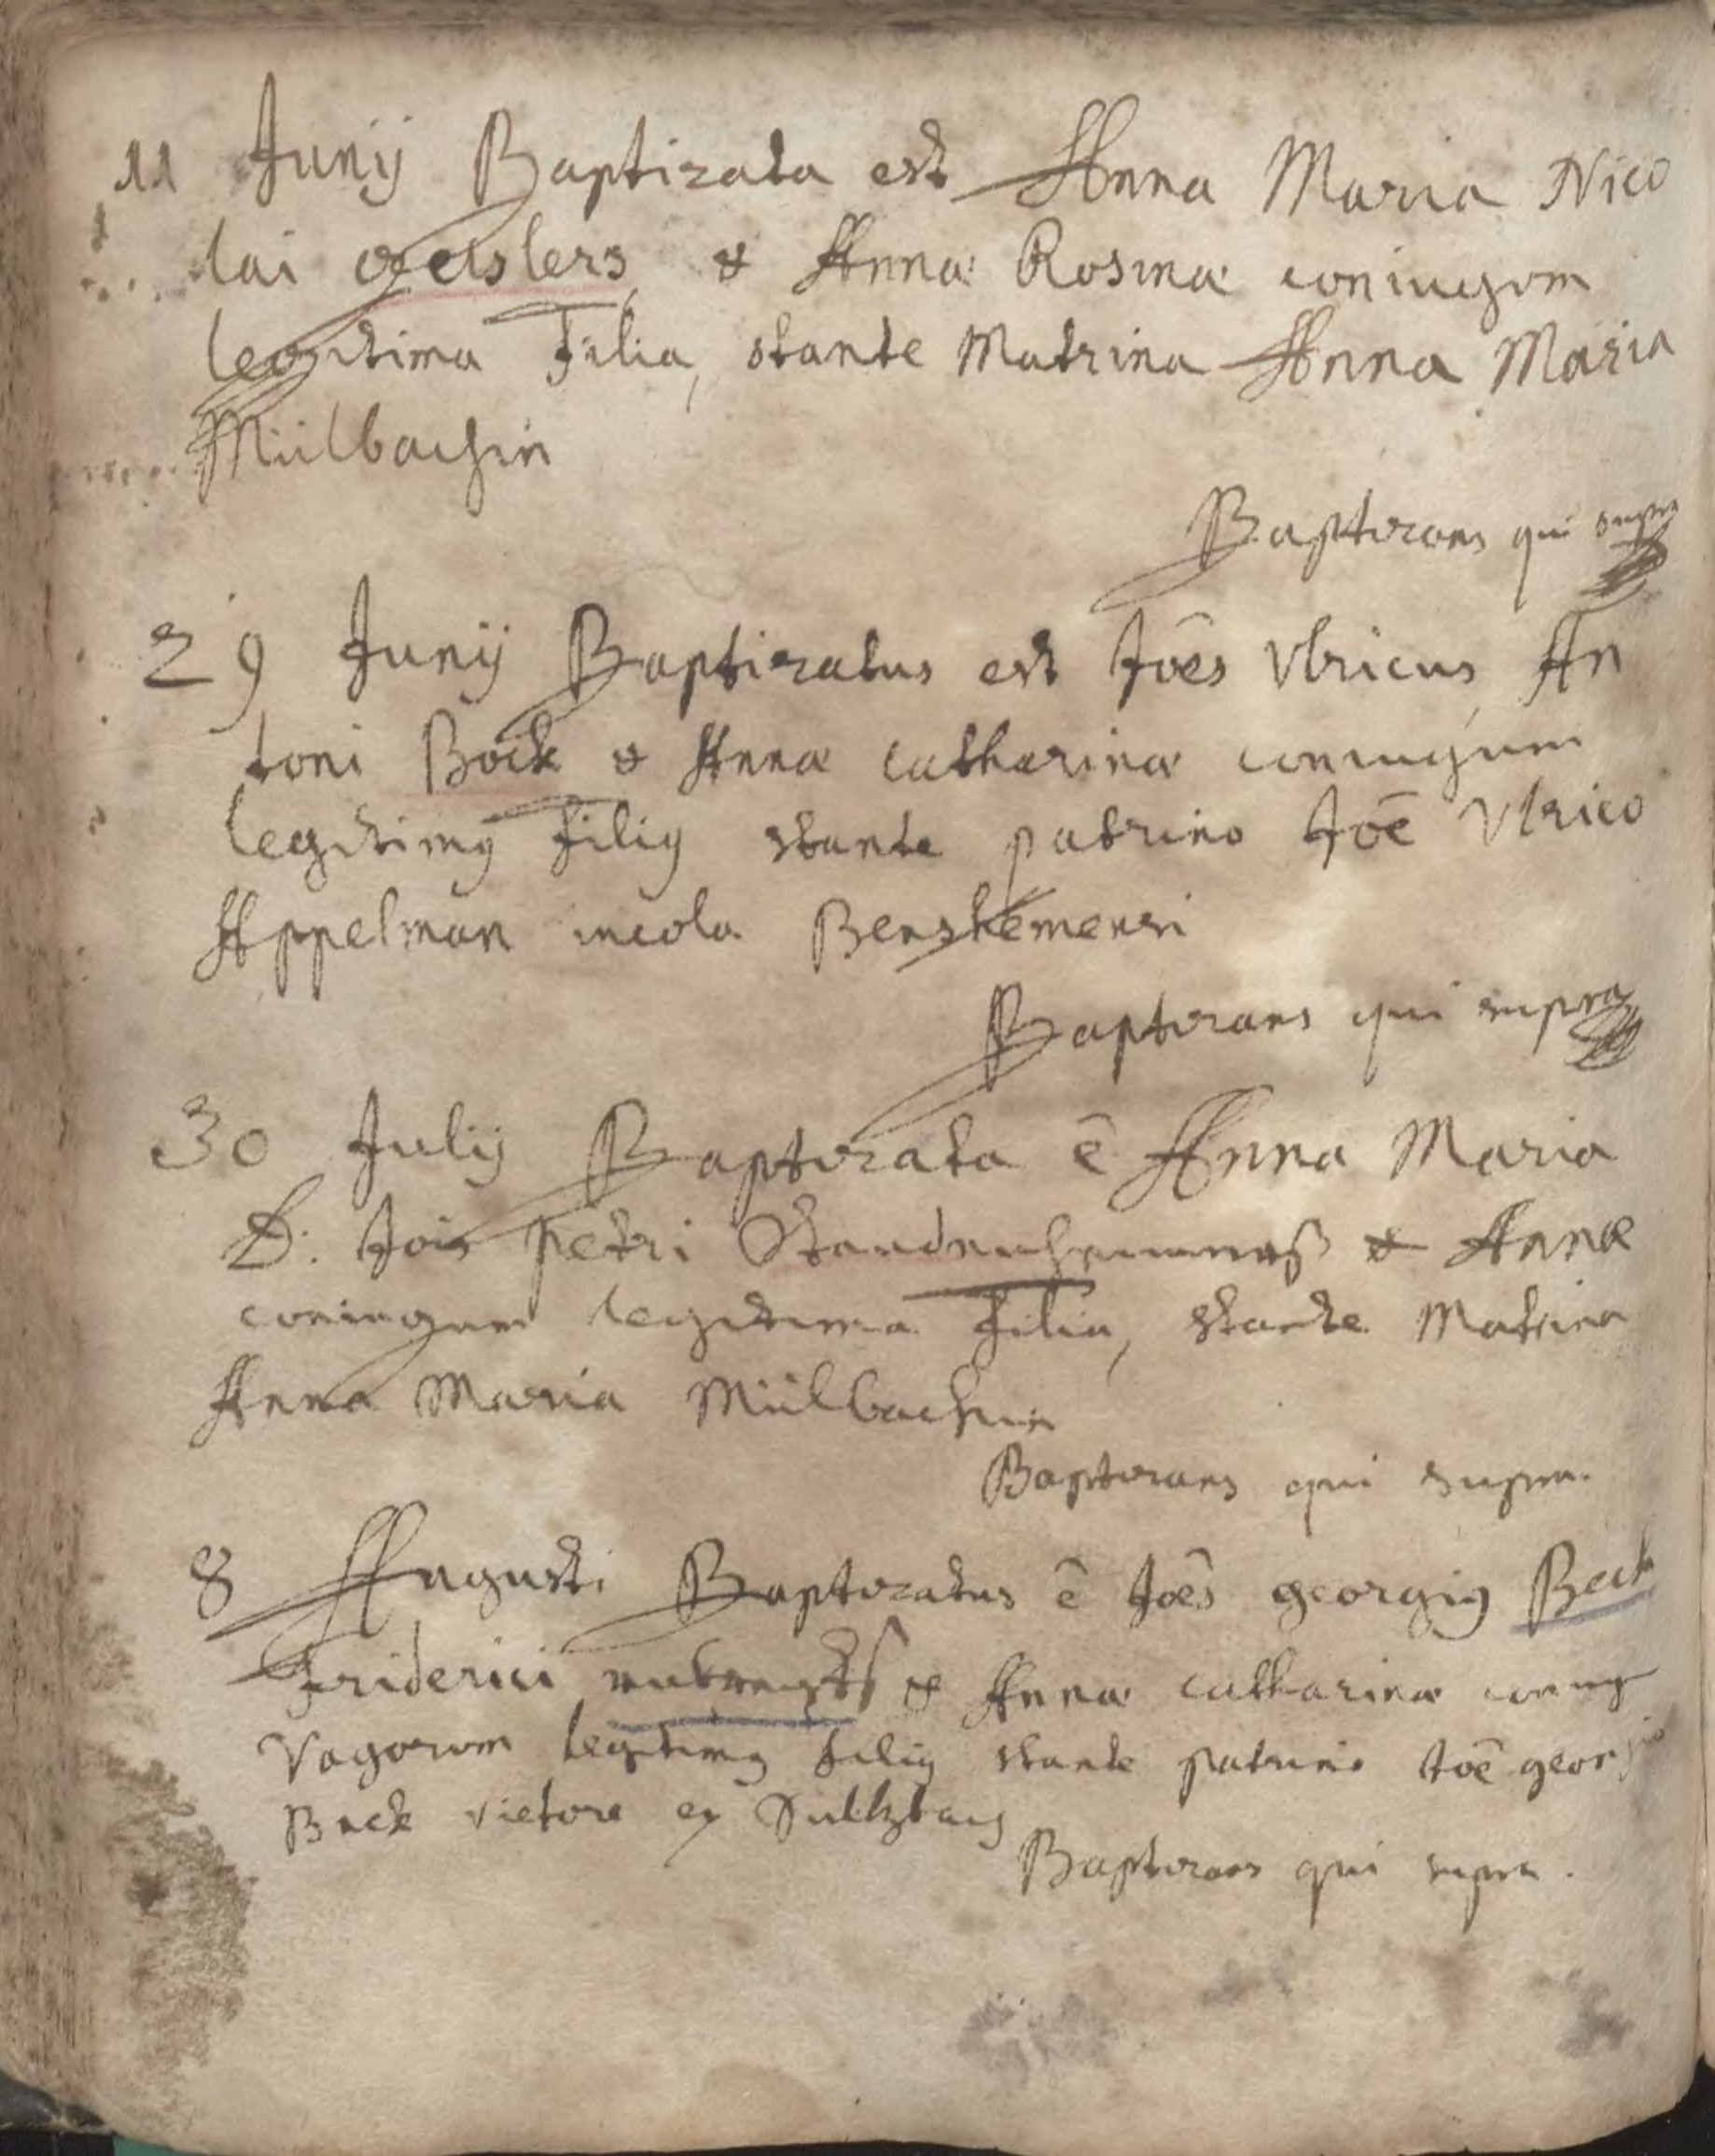 11 Junij Baptizata est Anna Maria Nico
lai geislers & Annæ Rosinæ coniugum
legitima Filia, stante Matrina Anna Maria
Mülbachin
Baptizans qui supra
29 Junij Baptizatus est Jōes Vlricus An
toni Bock & Annæ Catharinæ coniugum
legitimꝰ filiꝰ stante patrino Joē Vlrico
Appelman incola Benshemensi
Baptizans qui supra
30 Julij Baptizata ē Anna Maria
D. Jois petri & Annæ
coniugum legitima Filia, stante Matrina
Anna Maria Mülbachin
Baptizans qui supra.
8 Augusti Baptizatus ē Joēs georgiꝰ Beck
Friderici & Annæ Catharinæ coniug
Vagorum legitimꝰ filiꝰ stante patrino Joē georgio
Beck vietore ex Sultzbach
Baptizans qui supra.